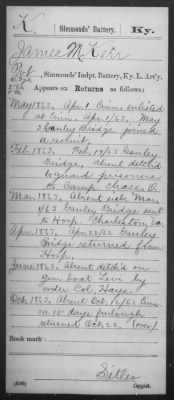 K. Simmonds' Battery, Ky.
James M. Kerr
Pvt., Simmonds' Indpt. Battery, Ky. L. Art'y.
Appears on Returns as follows:
May 1862. Apr. 1 Cinn. enlisted
at Cinn. Apr. 1/62. May
Gauley Bridge joined
a recruit.
Feb. 1863. Feb. 17/63 Gauley
Bridge. Absent detch'd
to guard prisoners
to Camp Chase O.
Mar. 1863. Absent sick Mar.
/63 Gauley Bridge sent
to Hosp. Charleston, Va.
Apr. 1863. Apr. 22/63 Gauley
Bridge returned from
Hosp.
June 1863. Absent detch'd on
gun boat Levi by
order Col. Hayes.
Oct. 1863. Absent Oct. /63 Cinn.
on 15 days furlough
returned Oct. 22. (over)
Book mark:
(546)
Copyist.